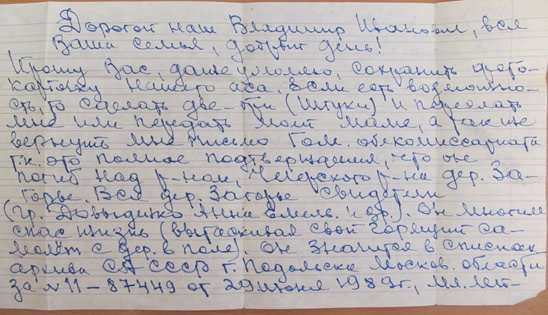 Дорогой наш Владимир Иванович, вся
Ваша семья, добрый день!
Прошу Вас, даже умоляю, сохранить фото-
карточку нашего аса. Если есть возможно-
сть, то сделать две-три (штуки) и переслать
мне или передать моей маме, а также
вернуть мне письмо Гом. облкомиссариата
т.к. это полное подтверждения, что он
погиб над р-ном, Чечерского р-на дер. За-
горье. Вся дер. Загорье свидетели
(гр. Анна и др.). Он многим
спас жизнь (вытаскивая свой горящий са-
молёт с дер. в поле). Он значится в списках
архива СА СССР г. Подольска Москов. области
за №11-87449 от 29 июня 1989г., мл. лей-